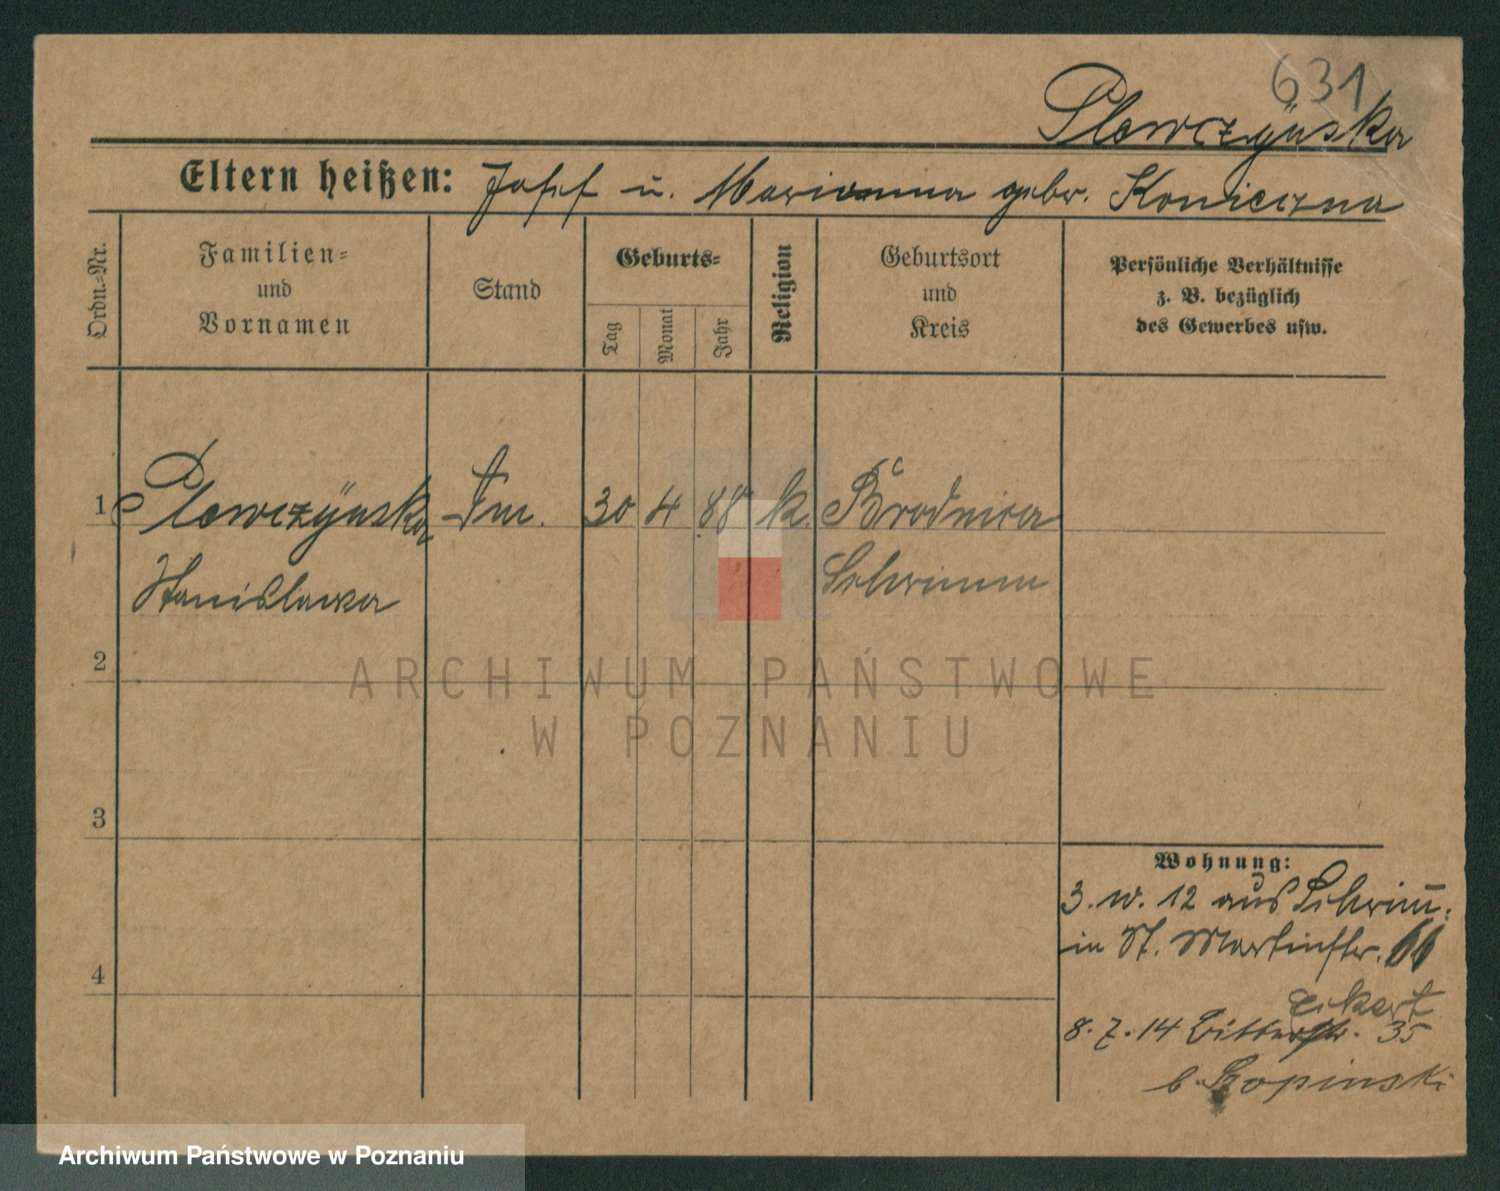 631
Plewczÿnska
Eltern heißen: Josef u. Marianna gebr. Konieczna
Ordn.-Nr.
Familien-
und
Vornamen
Stand
Geburts-
Tag
Monat
Jahr
Religion
Geburtsort
und
Kreis
Persönliche Verhältnisse
z. B. bezüglich
des Gewerbes usw.
1 Plewczÿnska 30 4 88 k. Brodnica
Stanislawa Schrimm
2
ARCHIWUM PAŃSTWOWE
W POZNANIU
3
Wohnung:
3. 12 aus Schrim̄.
in St. Martinstr. 66
Eckert
4
8. 7. 14 Ritterstr. 35
b. Lopinski
Archiwum Państwowe w Poznaniu